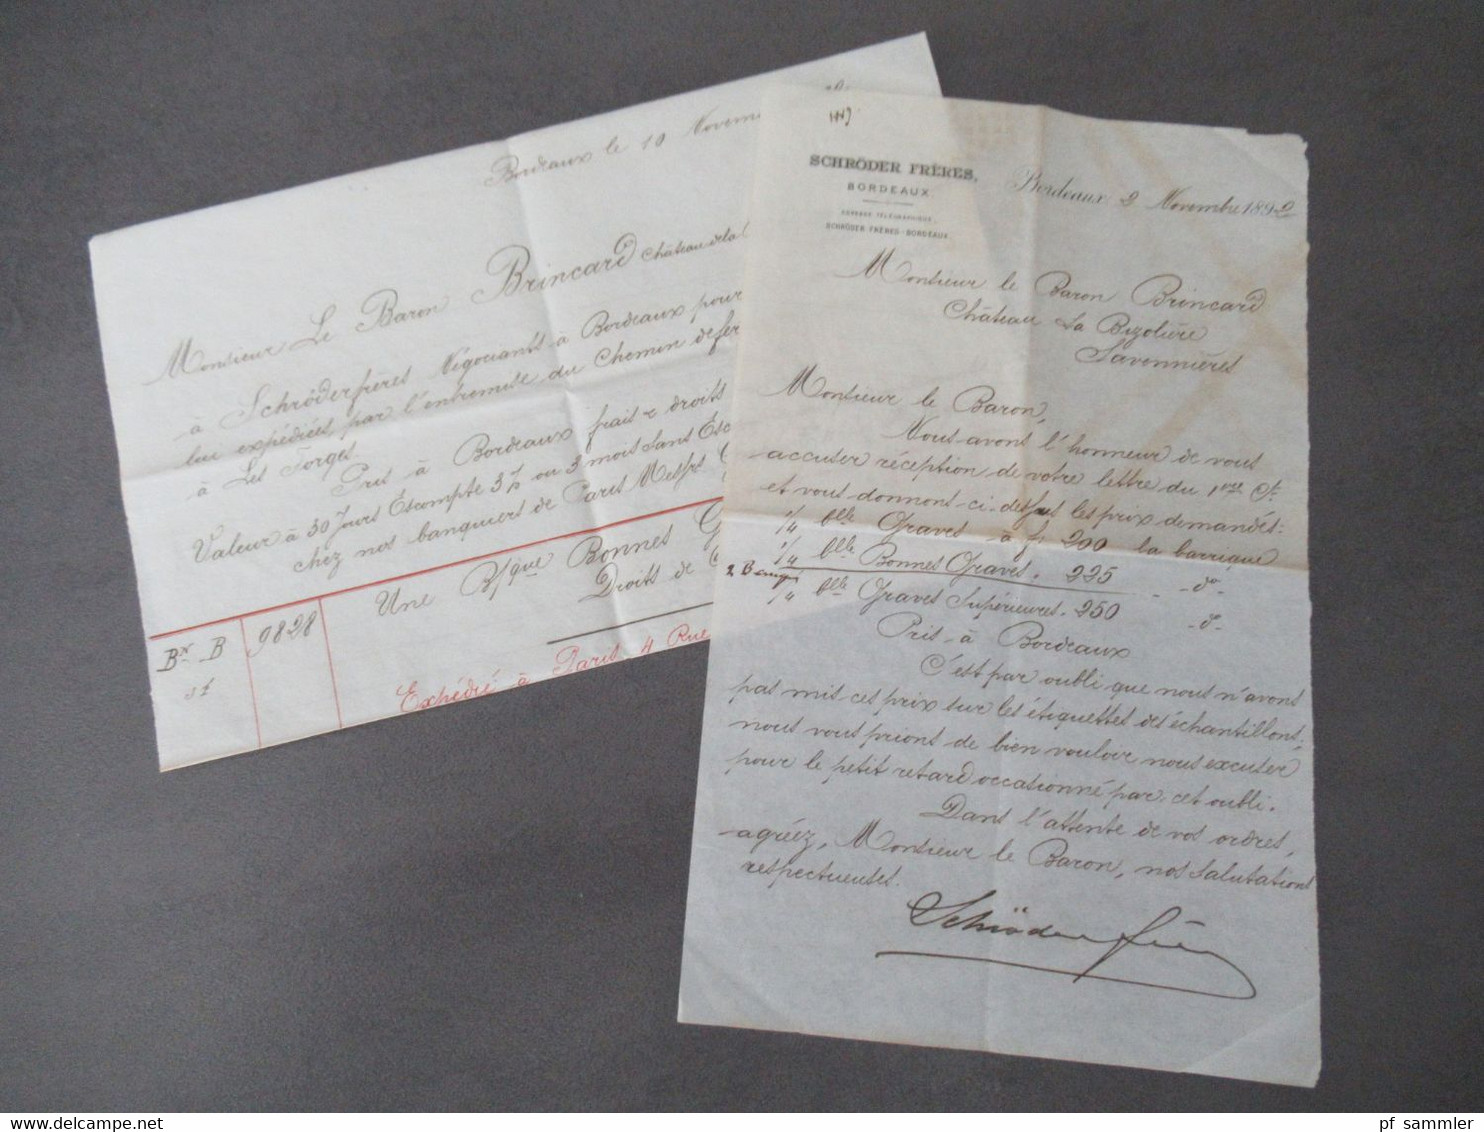 Bordeaux le 10 Novem
Monsieur Le Baron Brincard Château de la
à Schröder frères Négociants à Bordeaux pour
lui expédiées par l'entremise du Chemin de fer
à Les Forges
Pris à Bordeaux frais & droits
Valeur à 30 Jours Escompte 3% ou 3 mois Sans Esc
chez nos banquiers de Paris Messrs
Une B/que Bonnes G
Droits de
Bn B 9828
st
Expédié à Paris, 4 Rue
SCHRÖDER FRÈRES,
BORDEAUX.
ADRESSE TÉLÉGRAPHIQUE
SCHRÖDER FRÈRES-BORDEAUX.
Bordeaux 2 Novembre 189
Monsieur le Baron Brincard
Château La Bizolière
Savennières
Monsieur le Baron,
Nous avons l'honneur de vous
accuser réception de votre lettre du 1er Ct
et vous donnons ci-dessus les prix demandés:
1/4 blle Graves à f. 200 la barrique
1/4 blle Bonnes Graves. 225 - do-
1/4 blle Graves Supérieures. 250 - do-
Pris à Bordeaux
C'est par oubli que nous n'avons
pas mis ces prix sur les étiquettes des échantillons,
nous vous prions de bien vouloir nous excuser
pour le petit retard occasionné par cet oubli.
Dans l'attente de vos ordres,
agréez, Monsieur le Baron, nos salutations
respectueuses.
Schröder frères
pf sammler
delcampe.net